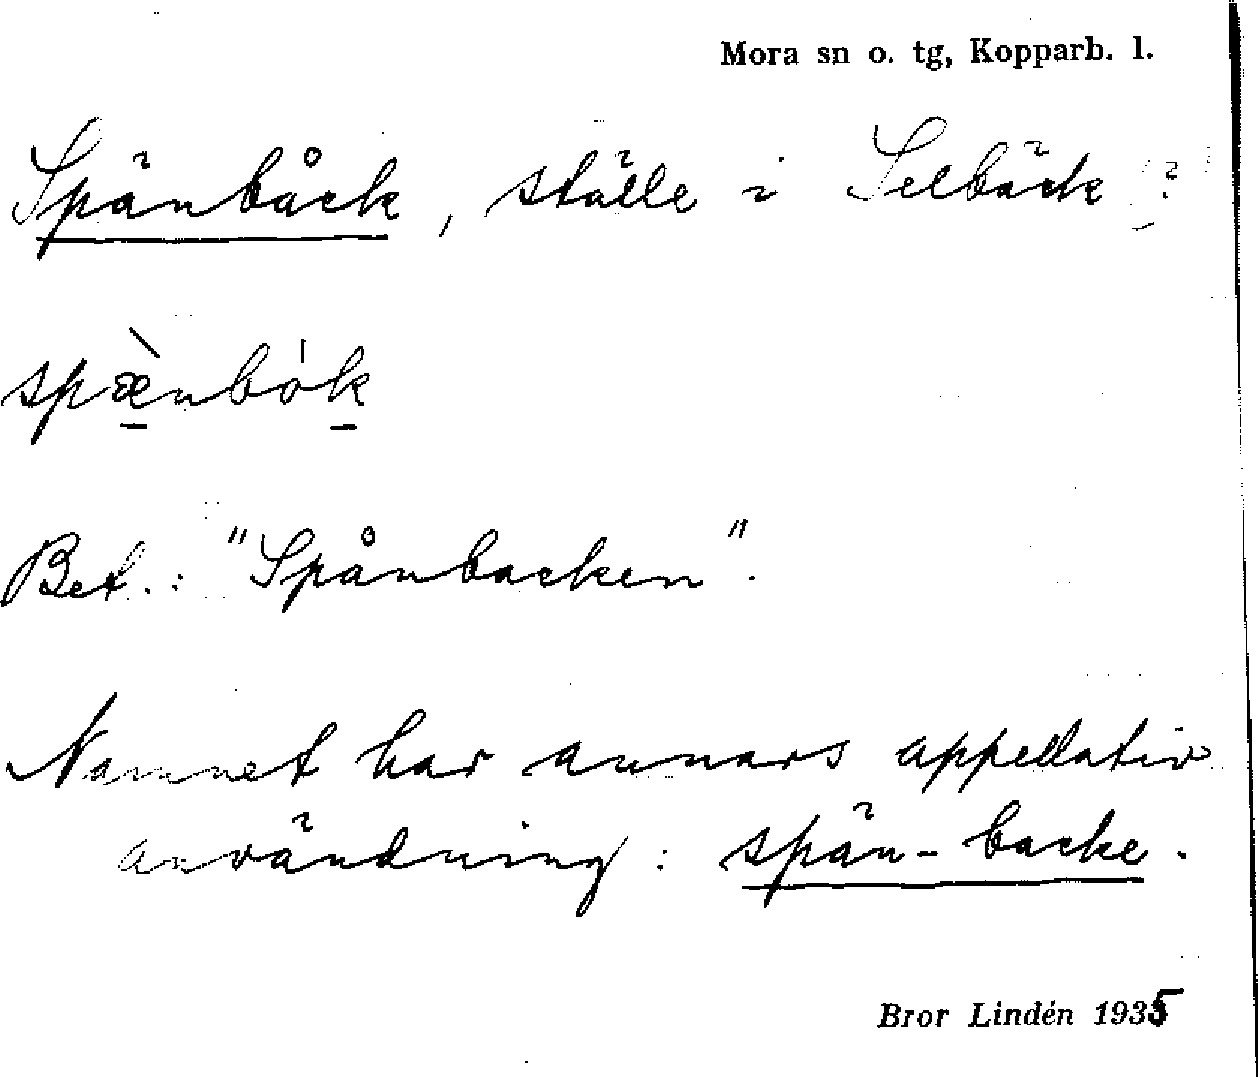 Mora sn o. tg, Kopparb. l.
Spänbåck, ställe i Selbäck (?)
spæ̀nbók
Bet.: "Spånbacken".
Namnet har annars appellativ
användning: spän-backe.
Bror Lindén 1935